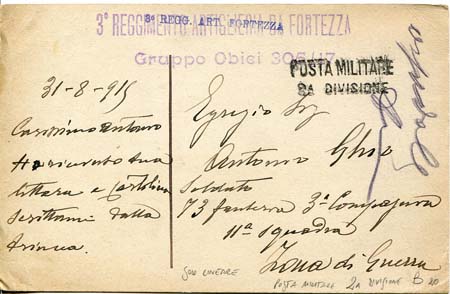 3° REGGIMENTO ARTIGLIERIA DA FORTEZZA
3° REGG. ART. FORTEZZA
Gruppo Obici 305/17
POSTA MILITARE
2A DIVISIONE
31-8-915
Carissimo Antonio
Ho ricevuto tua
littera e Cartolina
Scrittami dalla
Trincea.
Egregio Sig
Antonio Ghio
Soldato
73 fanteria 3ª Compagnia
11ª Squadra
Zona di Guerra
SOLO LINEARE
POSTA MILITARE 2a DIVISIONE B 20